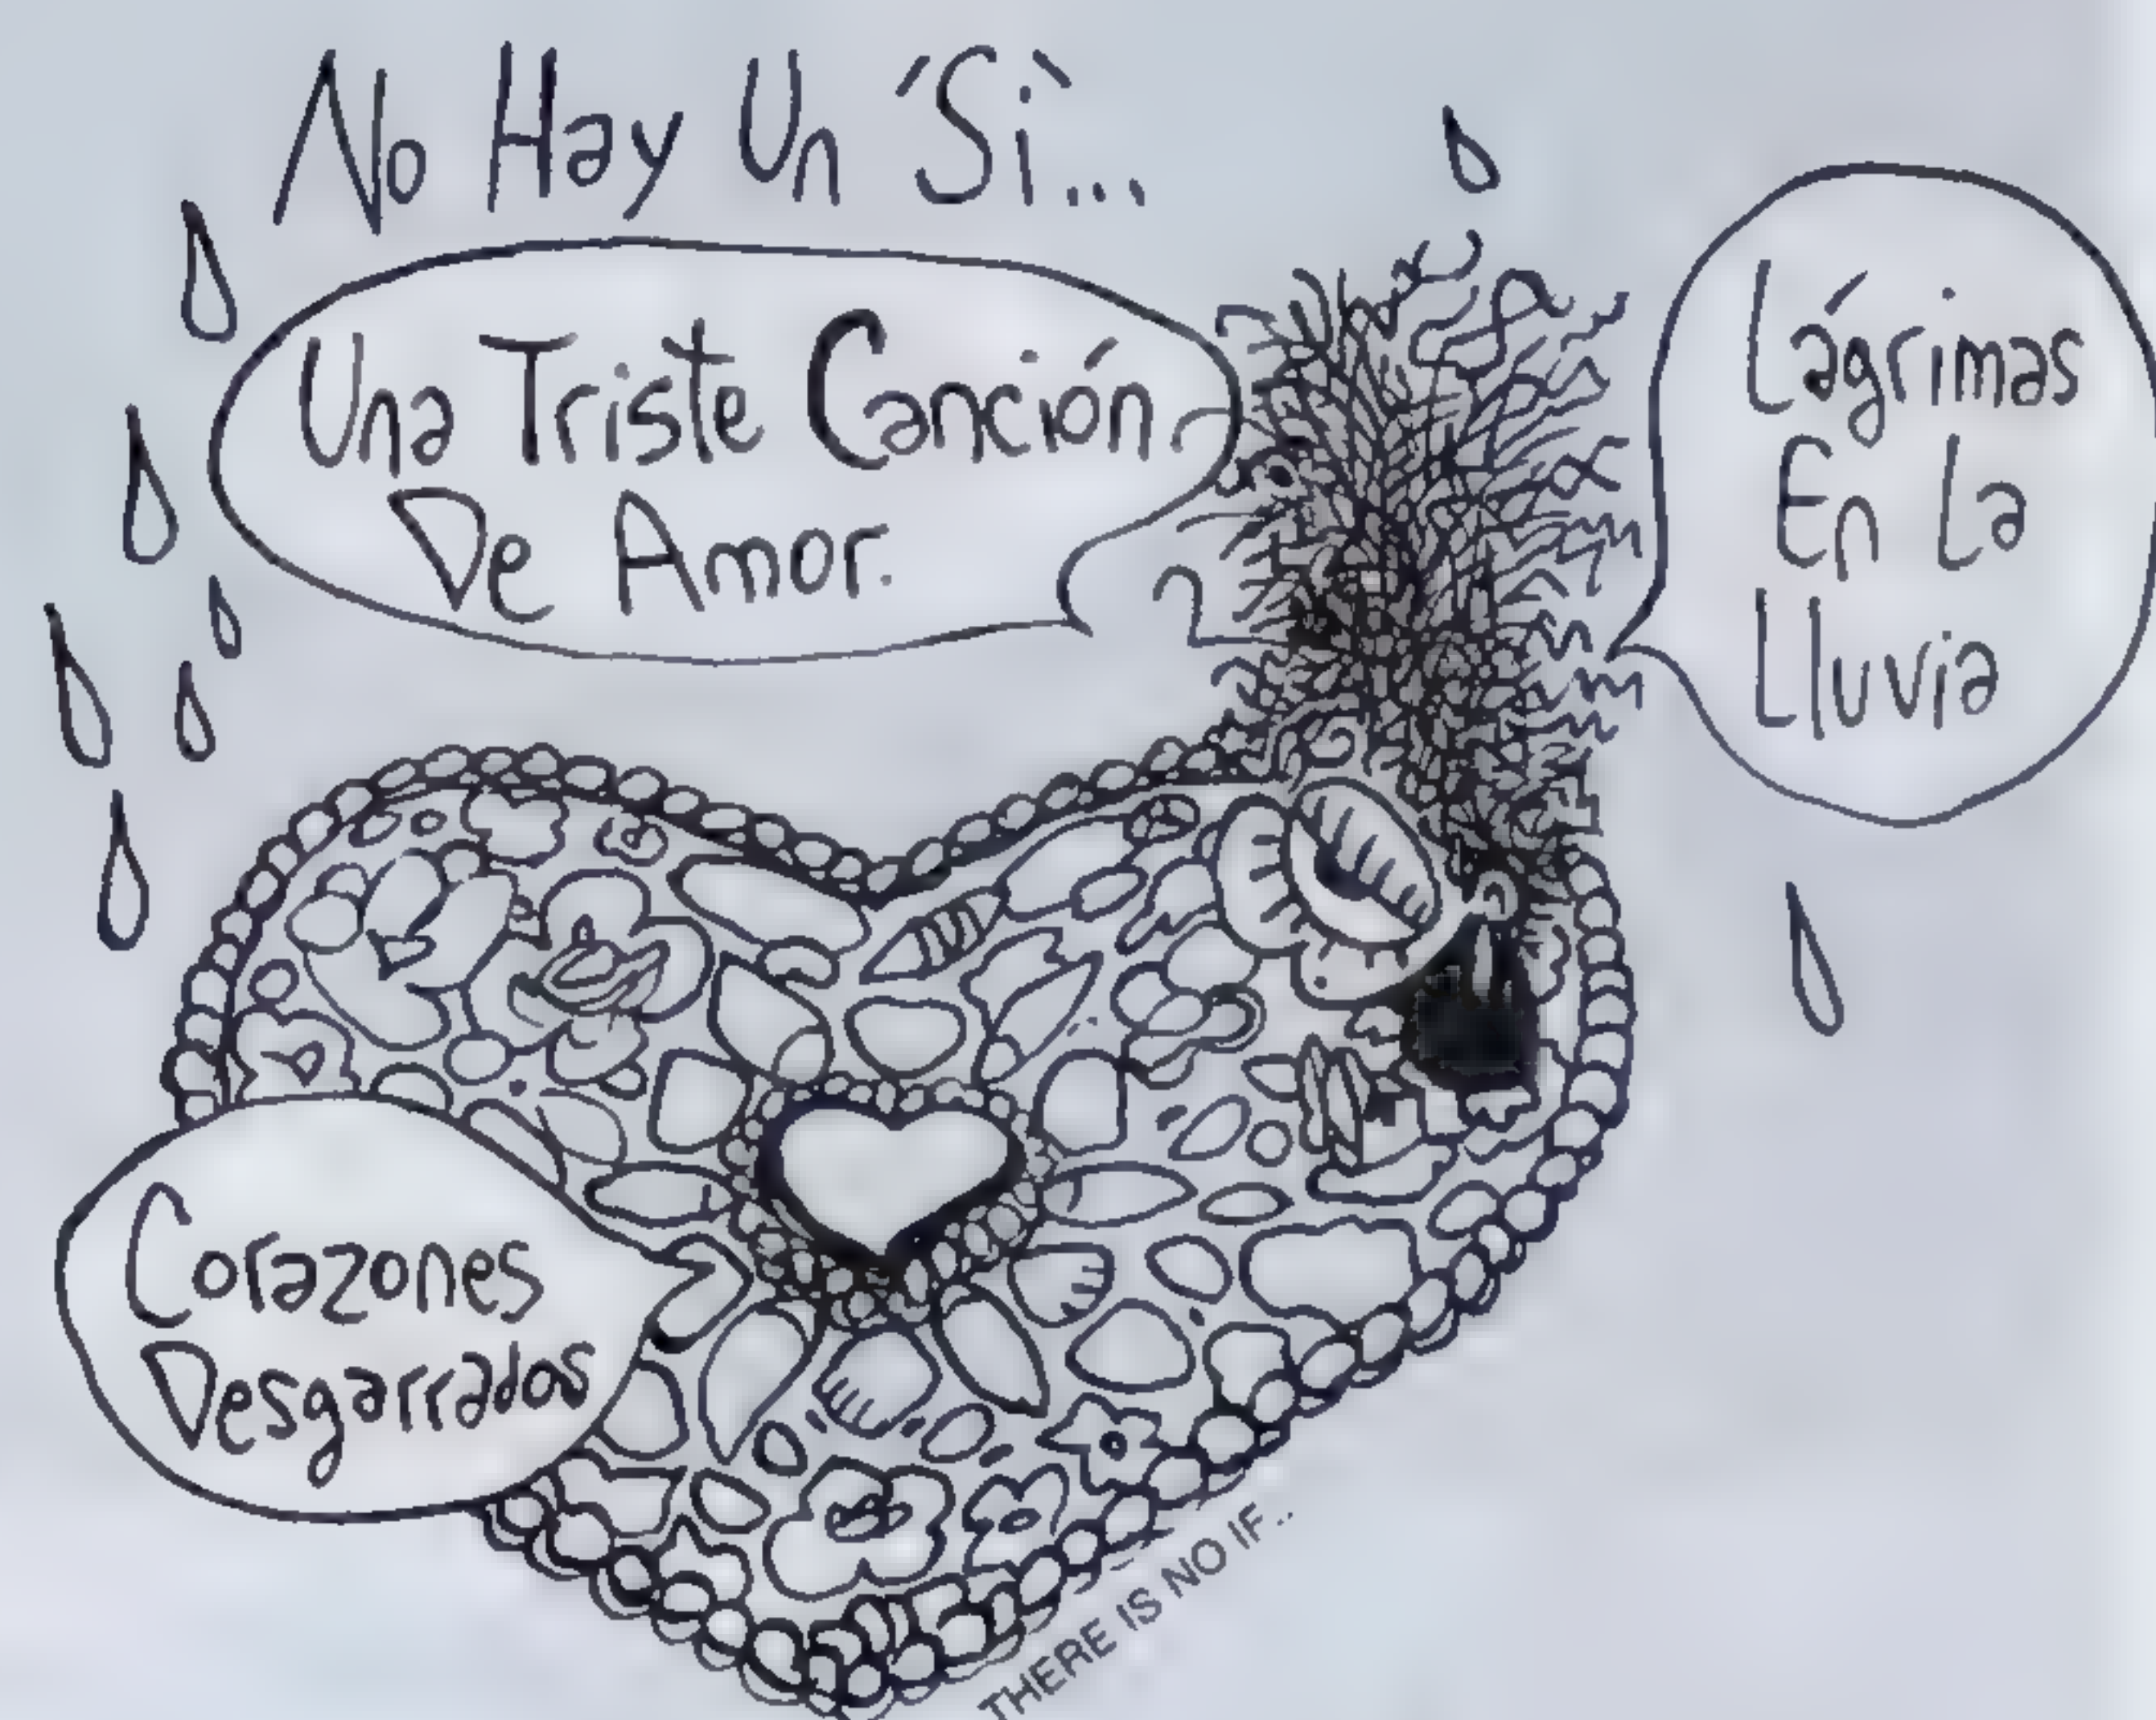 No Hay Un ´Si`...
Una Triste Canción
De Amor.
Lágrimas
En La
Lluvia
Corazones
Desgarrados
THERE IS NO IF..